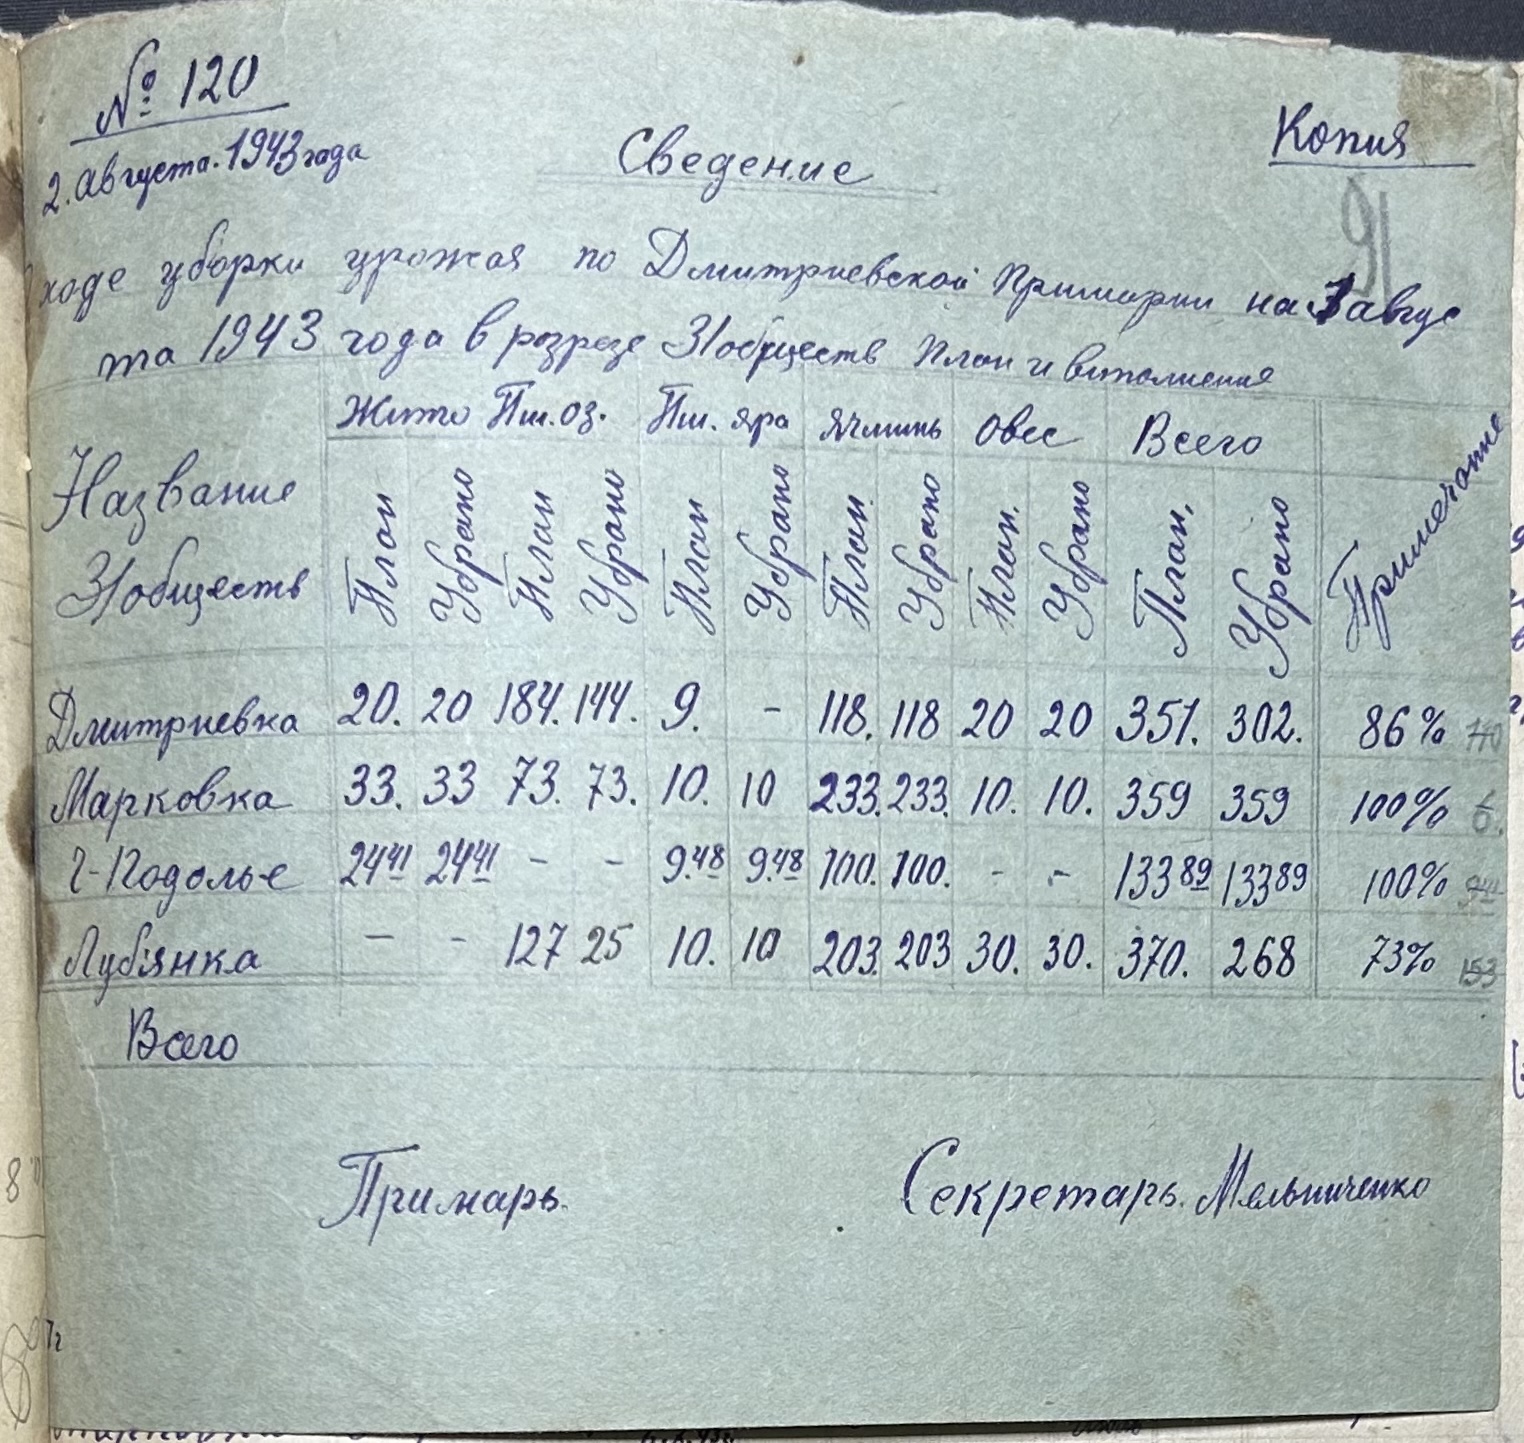 № 120
2. августа. 1943 года
Копия
Сведение
91
ходе уборки урожая по Дмитриевской Примарии на 1 авгус
та 1943 года в розрезе З/обществ План и выполнения
Название З/обществ Жито Пш. оз. Пш. яра Ячминь Овес Всего Примечание
План Убрано План Убрано План Убрано План Убрано План. Убрано План. Убрано
Дмитриевка 20. 20 184. 144. 9. - 118. 118 20 20 351. 302. 86%
Марковка 33. 33 73. 73. 10. 10 233. 233. 10. 10. 359 359 100% 6.
Г-Подолье 24 41 24 41 - - 9.48 9.48 100. 100. - - 133 89 133 89 100%
Лубянка - - 127 25 10. 10 203. 203 30. 30. 370. 268 73% 153
Всего
Примарь. Секретарь. Мельниченко